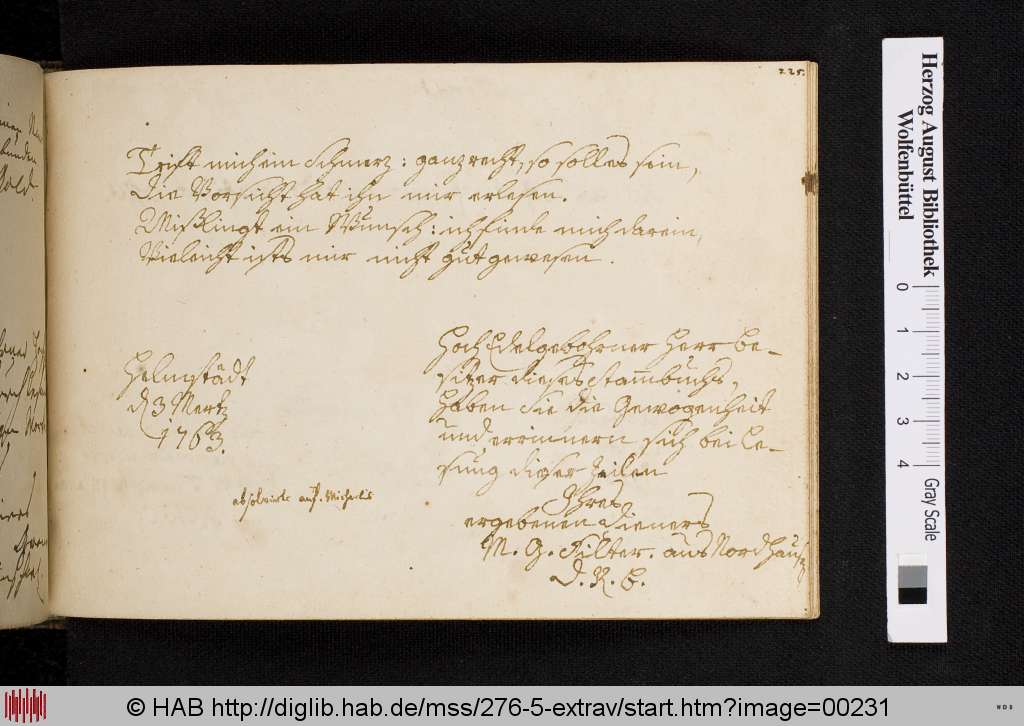 225.
Trift mich ein Schmerz: ganz recht, so solles sein,
die Vorsicht hat ihn mir erlesen.
Mißlingt ein Wunsch: ich finde mich darein,
Vieleicht ists mir nicht gut gewesen.
Helmstädt
d 3 Mertz
1763.
absolvirte auf Michaelis
HochEdelgebohrner Herr be-
sitzer dieses Stammbuchs,
haben Sie die Gewogenheit
und errinnern sich bei Le-
sung dieser Zeilen
Ihres
ergebenen Dieners
M. G. Filter. aus Nordhausen
D. R. B.
Herzog August Bibliothek
Wolfenbüttel
0
1
2
3
4
Gray Scale
© HAB http://diglib.hab.de/mss/276-5-extrav/start.htm?image=00231
WDB